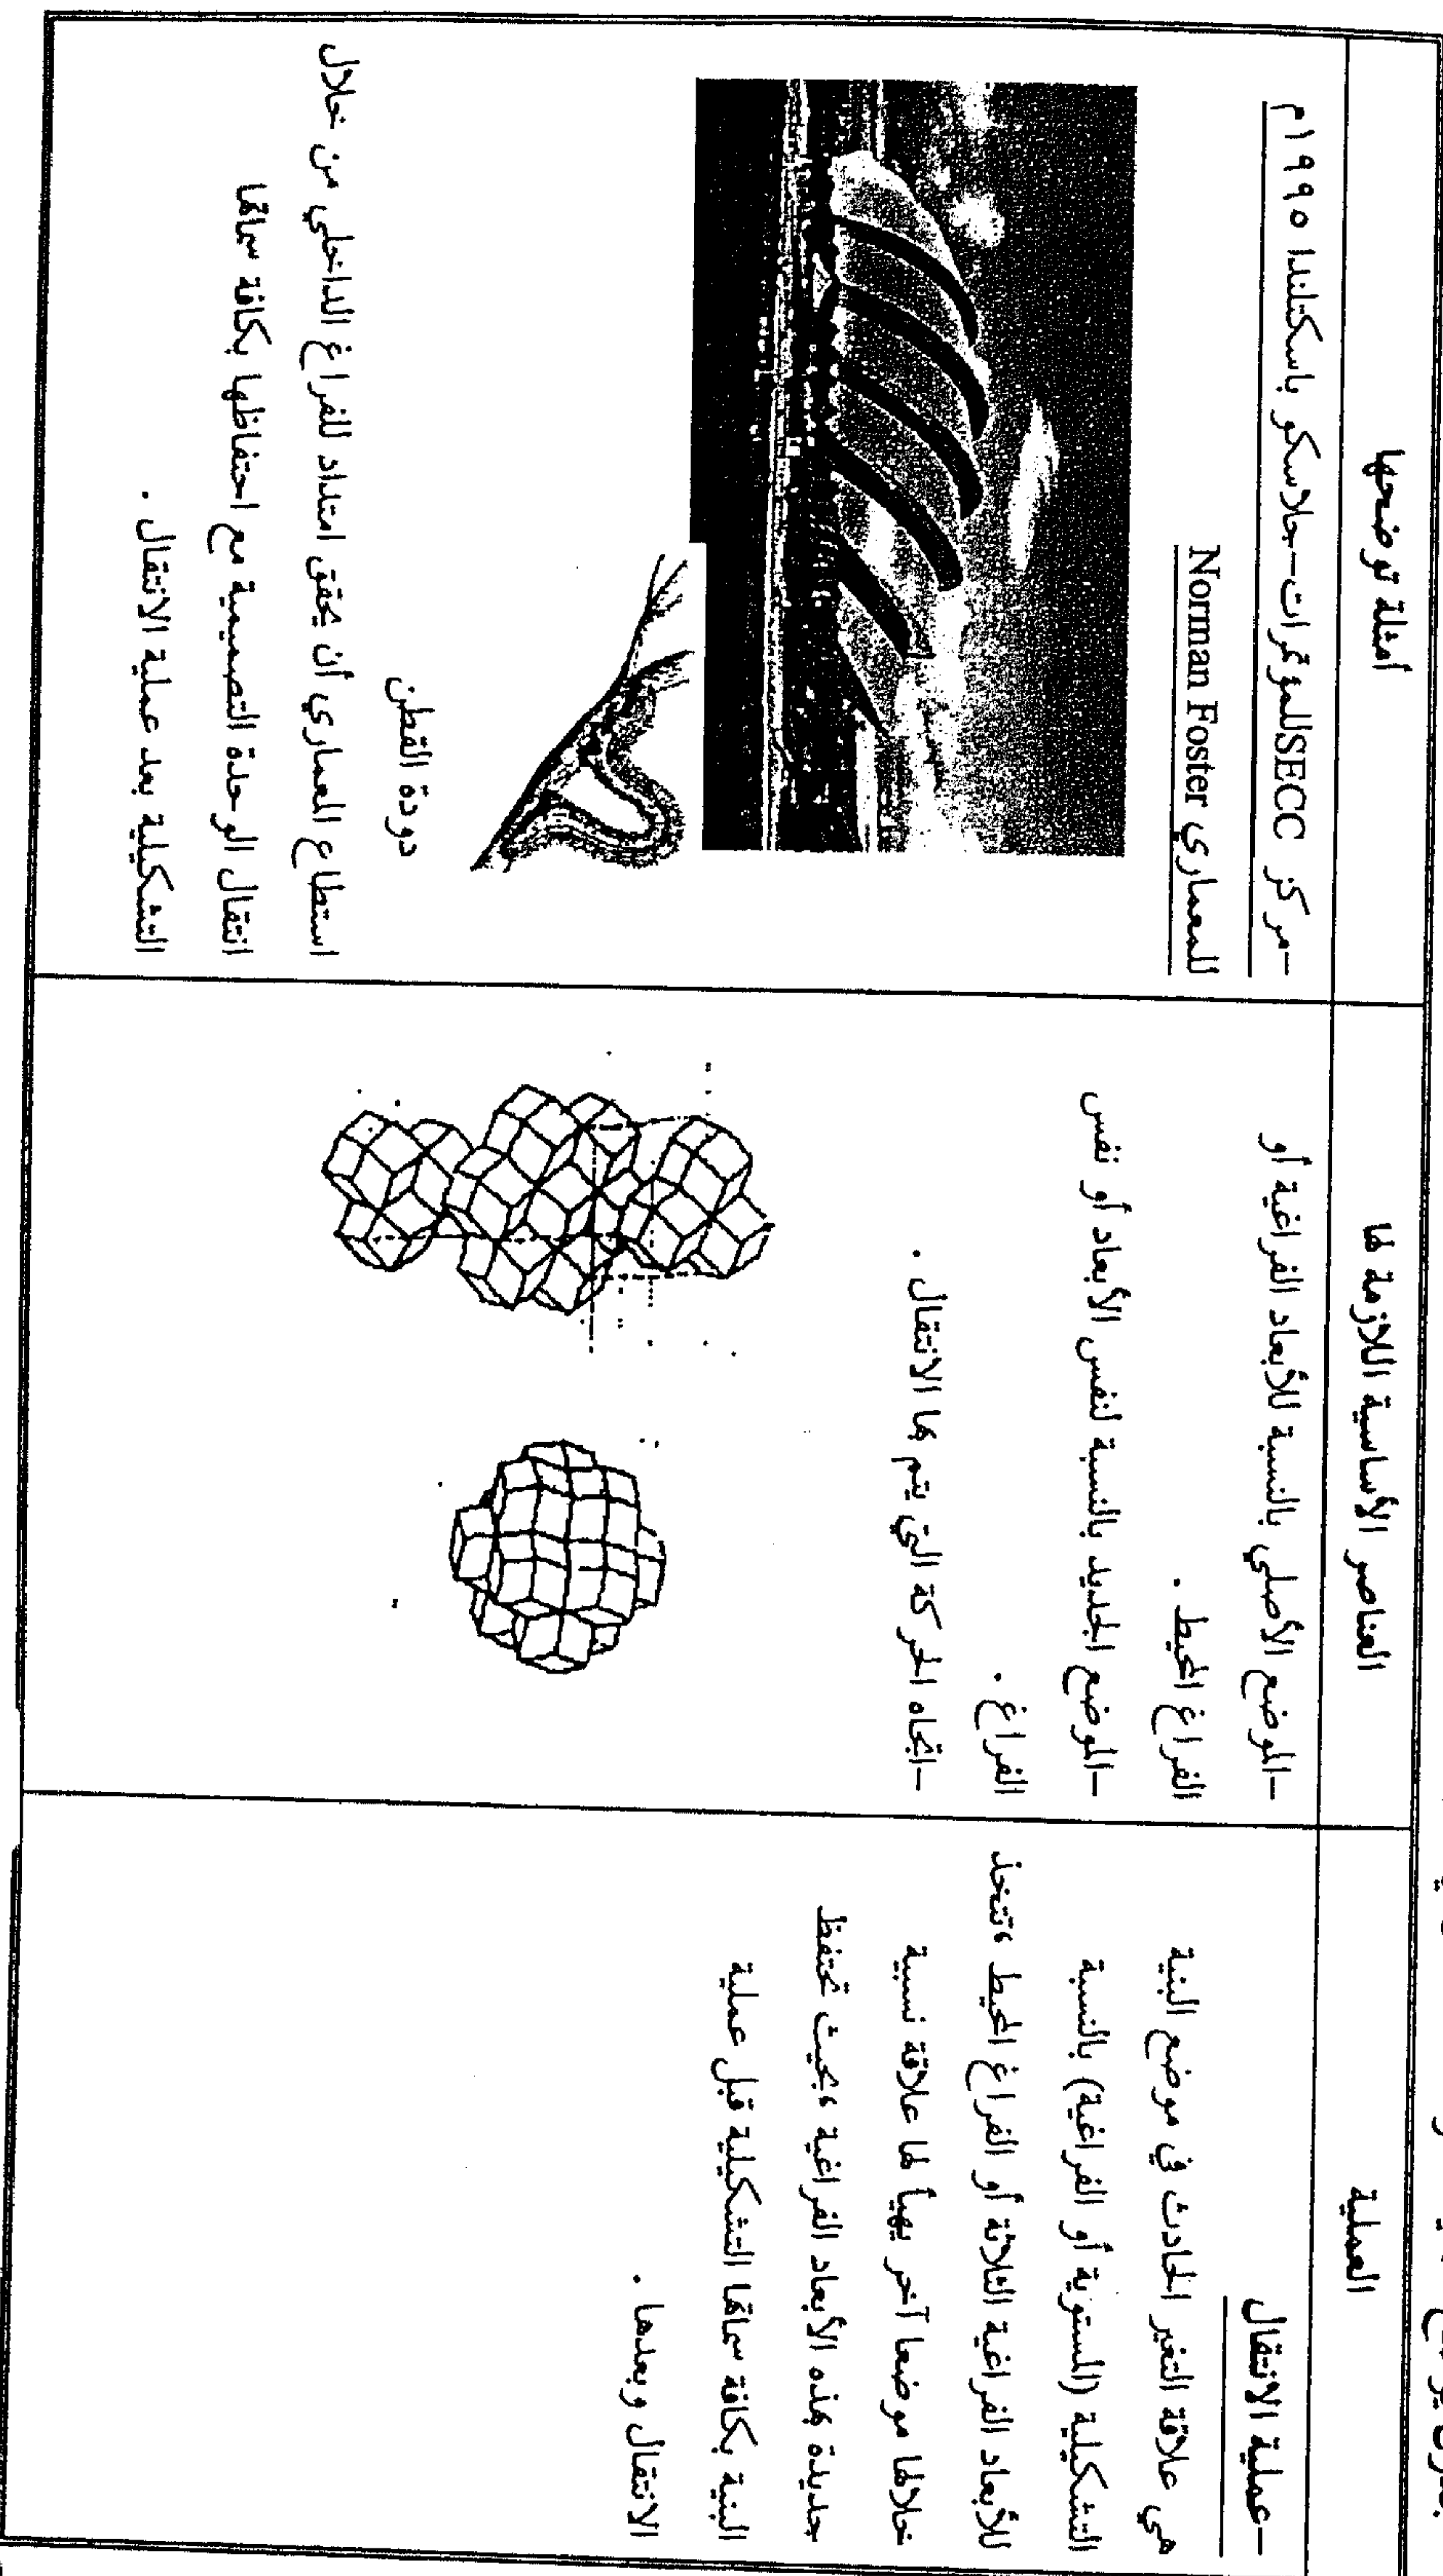 العملية
العناصر الأساسية اللازمة لها
أمثلة توضحها
-عملية الانتقال
هي علاقة التغير الحادث في موضع البنية
التشكيلية (المستوية أو الفراغية) بالنسبة
للأبعاد الفراغية الثلاثة أو الفراغ المحيط ،تتخذ
خلالها موضعا آخر يهيأ لها علاقة نسبية
جديدة بهذه الأبعاد الفراغية ،بحيث تحتفظ
البنية بكافة سماتها التشكيلية قبل عملية
الانتقال وبعدها .
-الموضع الأصلي بالنسبة للأبعاد الفراغية أو
الفراغ المحيط .
-الموضع الجديد بالنسبة لنفس الأبعاد أو نفس
الفراغ .
-اتجاه الحركة التي يتم بها الانتقال .
-مركز SECCللمؤتمرات-جلاسكو باسكتلندا ١٩٩٥م
للمعماري Norman Foster
دودة القطن
استطاع المعماري أن يحقق امتداد للفراغ الداخلي من خلال
انتقال الوحدة التصميمية مع احتفاظها بكافة سماتها
التشكيلية بعد عملية الانتقال .